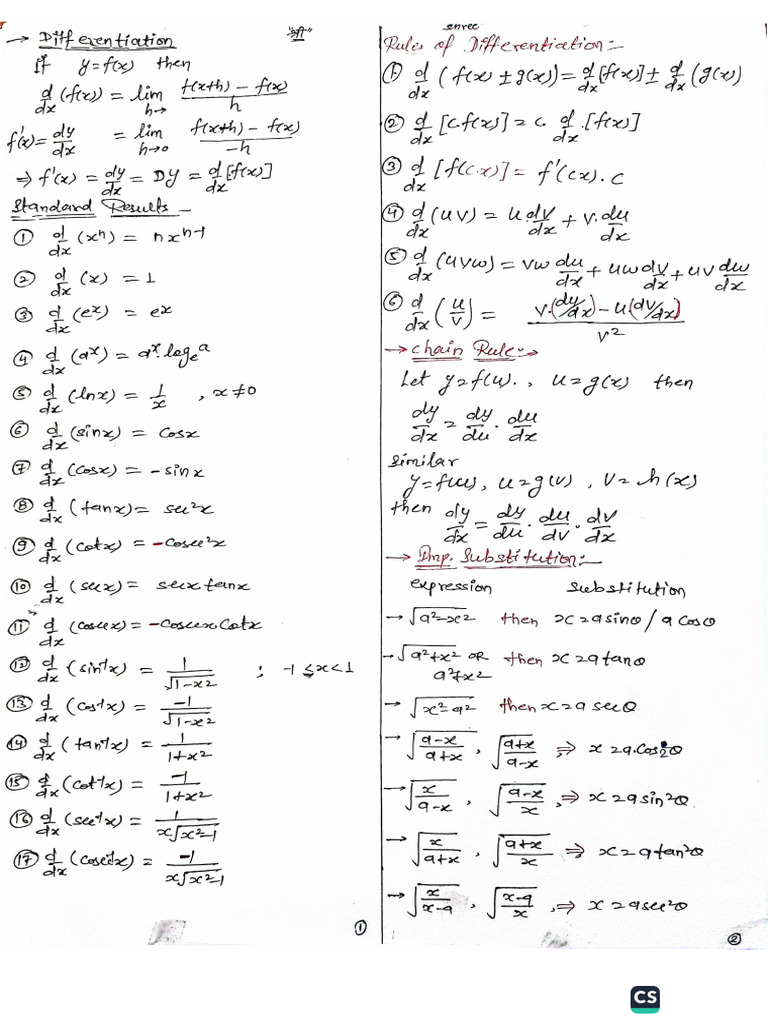 → Differentiation
"श्री"
If y=f(x) then
d/dx (f(x)) = lim h→ f(x+h) – f(x) / h
f'(x) = dy/dx = lim h→0 f(x+h) – f(x) / -h
⇒ f'(x) = dy/dx = DY = d/dx [f(x)]
Standard Results –
① d/dx (xⁿ) = nxⁿ⁻¹
② d/dx (x) = 1
③ d/dx (eˣ) = eˣ
④ d/dx (aˣ) = aˣ.logₑa
⑤ d/dx (lnx) = 1/x , x≠0
⑥ d/dx (sinx) = cosx
⑦ d/dx (cosx) = -sinx
⑧ d/dx (tanx) = sec²x
⑨ d/dx (cotx) = -cosec²x
⑩ d/dx (secx) = secxtanx
⑪ d/dx (cosecx) = -cosecxcotx
⑫ d/dx (sin⁻¹x) = 1/√1-x² ; -1≤x<1
⑬ d/dx (cos⁻¹x) = -1/√1-x²
⑭ d/dx (tan⁻¹x) = 1/1+x²
⑮ d/dx (cot⁻¹x) = -1/1+x²
⑯ d/dx (sec⁻¹x) = 1/x√x²-1
⑰ d/dx (cosec⁻¹x) = -1/x√x²-1
①
shree
Rules of Differentiation:-
① d/dx (f(x) ± g(x)) = d/dx [f(x)] ± d/dx (g(x))
② d/dx [c.f(x)] = c. d/dx .[f(x)]
③ d/dx [f(c.x)] = f'(cx).c
④ d/dx (uv) = u dv/dx + v. du/dx
⑤ d/dx (uvw) = vw du/dx + uw dv/dx + uv dw/dx
⑥ d/dx (u/v) = v.(du/dx) – u.(dv/dx) / v²
→ chain Rule:→
Let y=f(u). , u=g(x) then
dy/dx = dy/du . du/dx
similar
y=f(u), u=g(v) , v=h(x)
then dy/dx = dy/du . du/dv . dv/dx
→ Imp. Substitution:-
expression substitution
→ √a²-x² then x=asinθ / a cosθ
→ √a²+x² OR then x=atanθ
a²+x²
→ √x²-a² then x=a secθ
→ √a-x/a+x , √a+x/a-x , ⇒ x=a.cos2θ
→ √x/a-x , √a-x/x , ⇒ x=asin²θ
→ √x/a+x , √a+x/x , ⇒ x=atan²θ
→ √x/x-a , √x-a/x , ⇒ x=asec²θ
②
CS